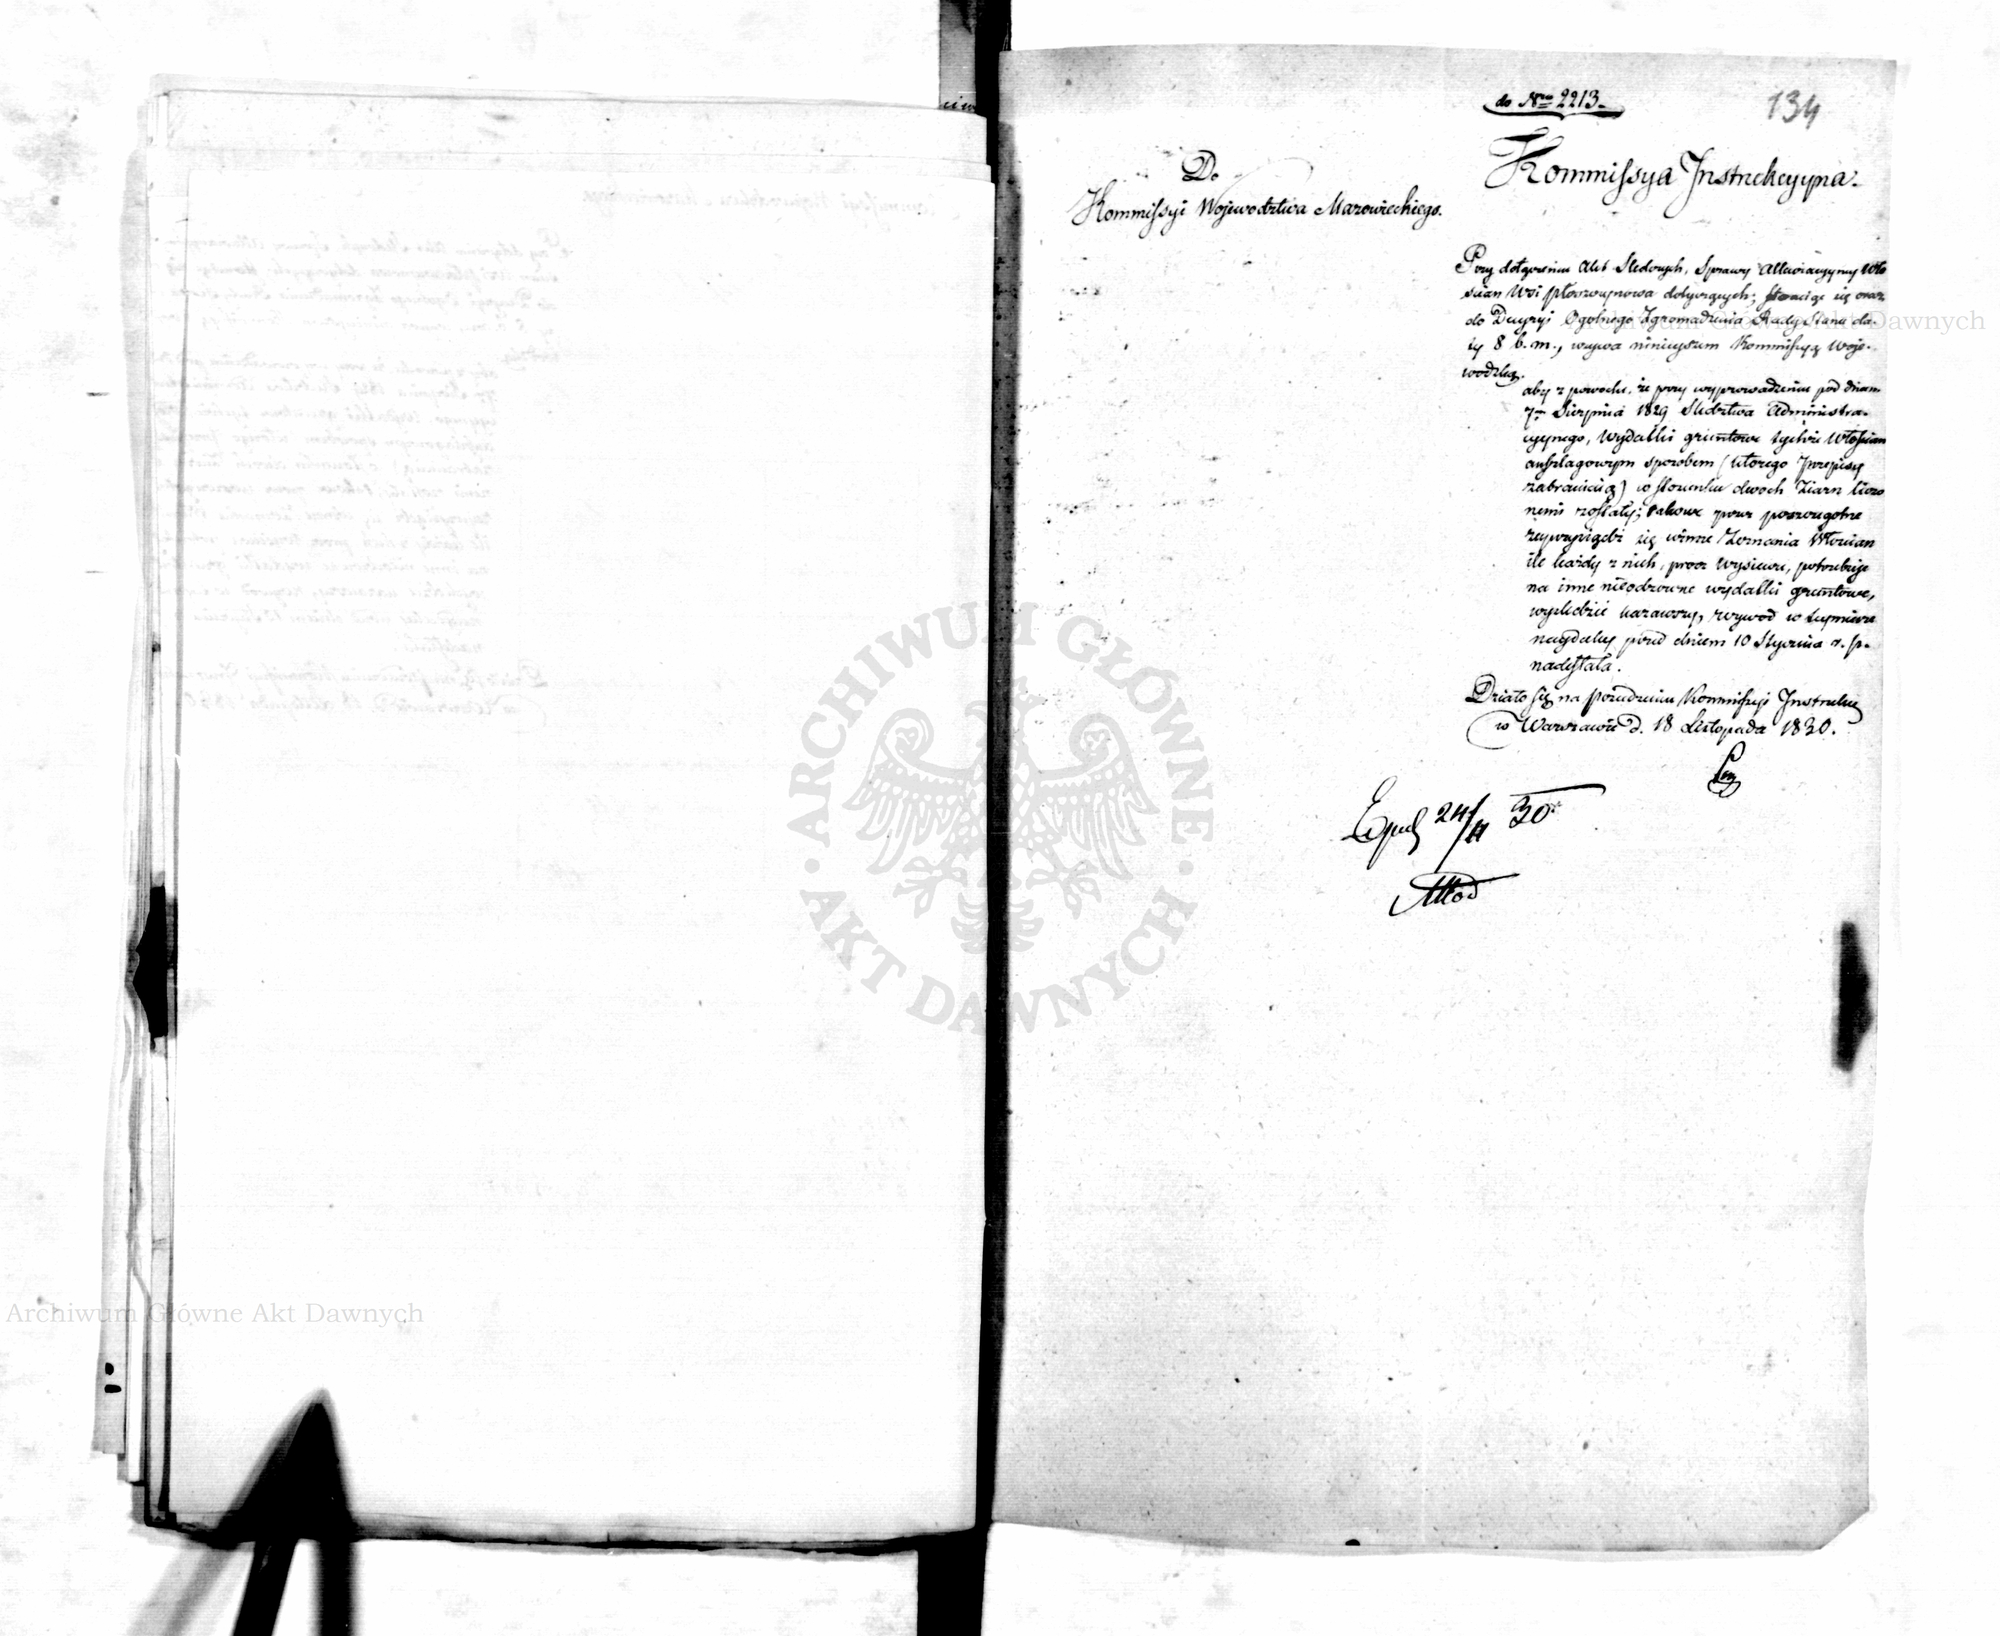 do Nro 2213.
134
Kommissya Instrukcyyna.
Do
Kommissyi Wojewodztwa Mazowieckiego.
Przy dołączeniu Akt Sledczych, Sprawy Włościan Wsi dotyczących; się oraz
do Decyzyi Ogolnego Zgromadzenia Rady Stanu da-
ty 8 b. m., wzywa ninieyszem Kommissyą Woje-
wodzką.
aby z powodu, że przy wyprowadzeniu pod dniem
7m Sierpnia 1829 Sledztwa Administra-
cyynego, Wydatki gruntowe tychże Włościan
anszlagowym sposobem (którego Przepisy
zabraniaią) w stosunku dwoch Ziarn liczo
nemi zostały; takowe przez poszczegolne
się winne Zeznania Włościan
ile każdy z nich, procz Wysiewu, potrzebuje
na inne nieodzowne wydatki gruntowe,
wysledzić kazawszy, wywod w tey mierze
naydaley przed dniem 10 Stycznia r. p.
nadesłała.
Działo się na posiedzeniu Kommissyi Instrukc
w Warszawie d. 18 Listopada 1830.
Exped 24/11 30
Archiwum Główne Akt Dawnych
ARCHIWUM GŁÓWNE
AKT DAWNYCH
Archiwum Główne Akt Dawnych